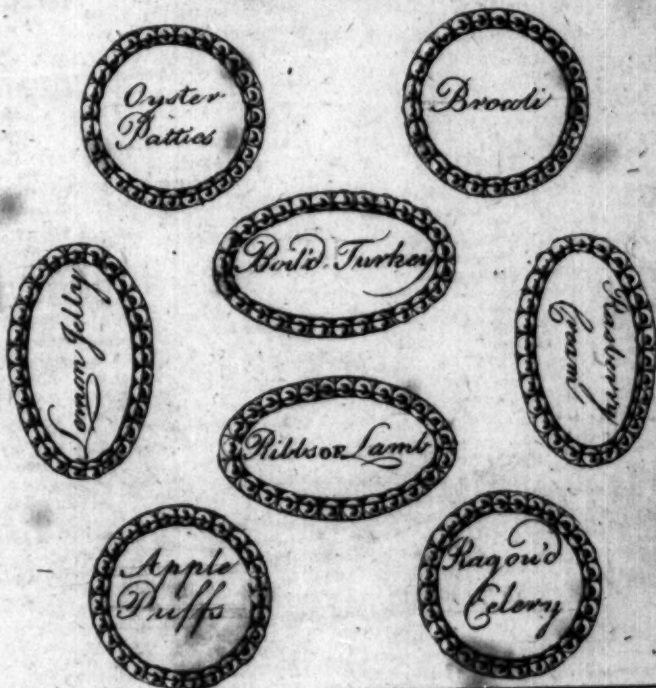 Oyster
Patties
Brocoli
Boil'd Turkey
Lemon Jelly
Rasberry
Cream
Ribbs OF Lamb
Apple
Puffs
Ragou'd
Celery